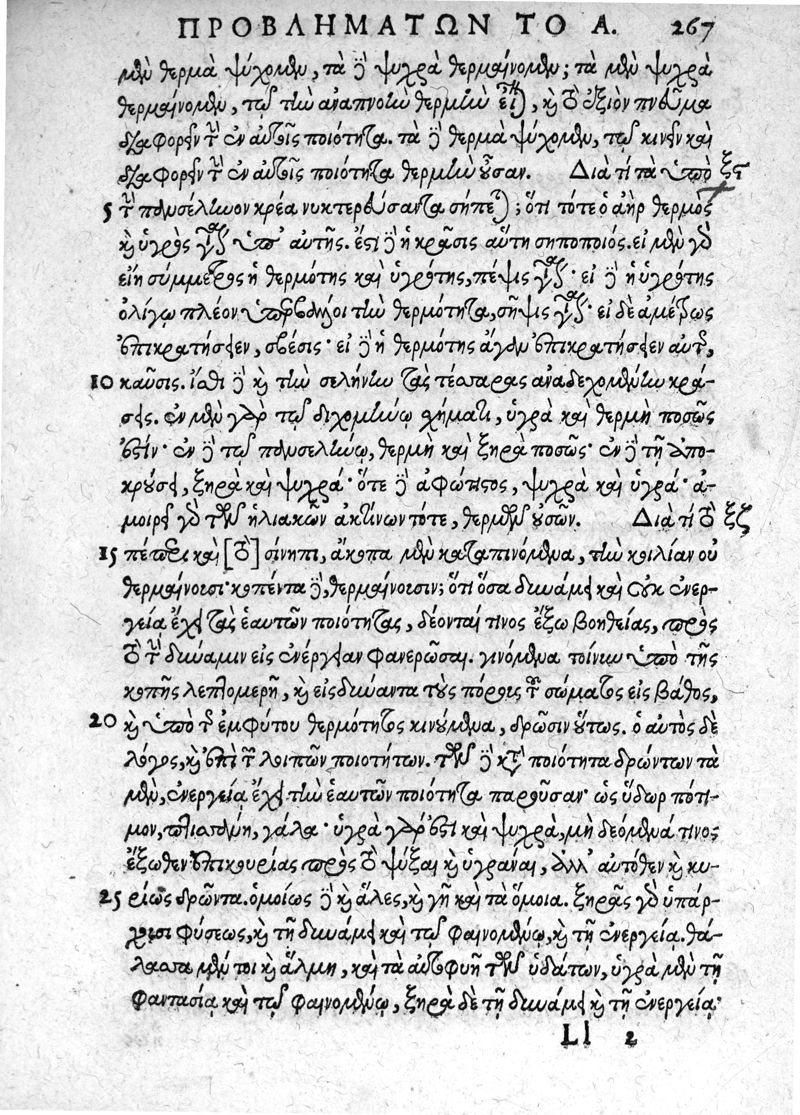 ΠΡΟΒΛΗΜΑΤΩΝ ΤΟ Α. 267
μὲν θερμὰ ψύχομεν, τὰ δὲ ψυχρὰ θερμαίνομεν; τὰ μὲν ψυχρὰ
θερμαίνομεν, τῷ τὴν ἀναπνοὴν θερμὴν εἶναι, καὶ τὸ ἐξιὸν πνεῦμα
διαφορεῖν τὴν ἐν αὐτοῖς ποιότητα. τὰ δὲ θερμὰ ψύχομεν, τῷ κινεῖν καὶ
διαφορεῖν τὴν ἐν αὐτοῖς ποιότητα θερμὴν οὖσαν. Διὰ τί τὰ ὑπὸ ξϛ
5 τὴν πανσέληνον κρέα νυκτερεύσαντα σήπεται; ὅτι τότε ὁ ἀὴρ θερμὸς
καὶ ὑγρὸς γίνεται ὑπ' αὐτῆς. ἔστι δὲ ἡ κρᾶσις αὕτη σηποποιός. εἰ μὲν γὰρ
εἴη σύμμετρος ἡ θερμότης καὶ ὑγρότης, πέψις γίνεται· εἰ δὲ ἡ ὑγρότης
ὀλίγῳ πλέον ὑπερβάλλοι τὴν θερμότητα, σῆψις γίνεται· εἰ δὲ ἀμέτρως
ἐπικρατήσειεν, σβέσις· εἰ δὲ ἡ θερμότης ἄγαν ἐπικρατήσειεν αὐτῆς,
10 καῦσις. ἴσθι δὲ καὶ τὴν σελήνην τὰς τέσσαρας ἀναδεχομένην κρά-
σεις. ἐν μὲν γὰρ τῷ διχομήνῳ σχήματι, ὑγρὰ καὶ θερμὴ ποσῶς
ἐστίν· ἐν δὲ τῷ πανσελήνῳ, θερμὴ καὶ ξηρὰ ποσῶς· ἐν δὲ τῇ ἀπο-
κρούσει, ξηρὰ καὶ ψυχρά· ὅτε δὲ ἀφώτιστος, ψυχρὰ καὶ ὑγρά· ἀ-
μοιρεῖ γὰρ τῶν ἡλιακῶν ἀκτίνων τότε, θερμῶν οὐσῶν. Διὰ τί τὸ ξζ
15 πέπερι καὶ [τὸ] σίνηπι, ἄκοπα μὲν καταπινόμενα, τὴν κοιλίαν οὐ
θερμαίνουσι· κοπέντα δὲ, θερμαίνουσιν; ὅτι ὅσα δυνάμει καὶ οὐκ ἐνερ-
γείᾳ ἔχει τὰς ἑαυτῶν ποιότητας, δέονταί τινος ἔξω βοηθείας, πρὸς
τὸ τὴν δύναμιν εἰς ἐνέργειαν φανερῶσαι. γινόμενα τοίνυν ὑπὸ τῆς
κοπῆς λεπτομερῆ, καὶ εἰσδύναντα τοὺς πόρους τοῦ σώματος εἰς βάθος,
20 καὶ ὑπὸ τῆς ἐμφύτου θερμότητος κινούμενα, δρῶσιν οὕτως. ὁ αὐτὸς δὲ
λόγος, καὶ ἐπὶ τῶν λοιπῶν ποιοτήτων. τῶν δὲ κατὰ ποιότητα δρώντων τὰ
μὲν, ἐνεργείᾳ ἔχει τὴν ἑαυτῶν ποιότητα παροῦσαν· ὡς ὕδωρ πότι-
μον, πτισάνη, γάλα· ὑγρὰ γάρ ἐστι καὶ ψυχρὰ, μὴ δεόμενά τινος
ἔξωθεν ἐπικουρίας πρὸς τὸ ψύξαι καὶ ὑγρᾶναι, ἀλλ' αὐτόθεν καὶ κυ-
25 ρίως δρῶντα. ὁμοίως δὲ καὶ ἅλες, καὶ γῆ καὶ τὰ ὅμοια. ξηρᾶς γὰρ ὑπάρ-
χουσι φύσεως, καὶ τῇ δυνάμει καὶ τῷ φαινομένῳ, καὶ τῇ ἐνεργείᾳ. θά-
λασσα μέν τοι καὶ ἅλμη, καὶ τὰ αὐτοφυῆ τῶν ὑδάτων, ὑγρὰ μὲν τῇ
φαντασίᾳ καὶ τῷ φαινομένῳ, ξηρὰ δὲ τῇ δυνάμει καὶ τῇ ἐνεργείᾳ·
Ll 2